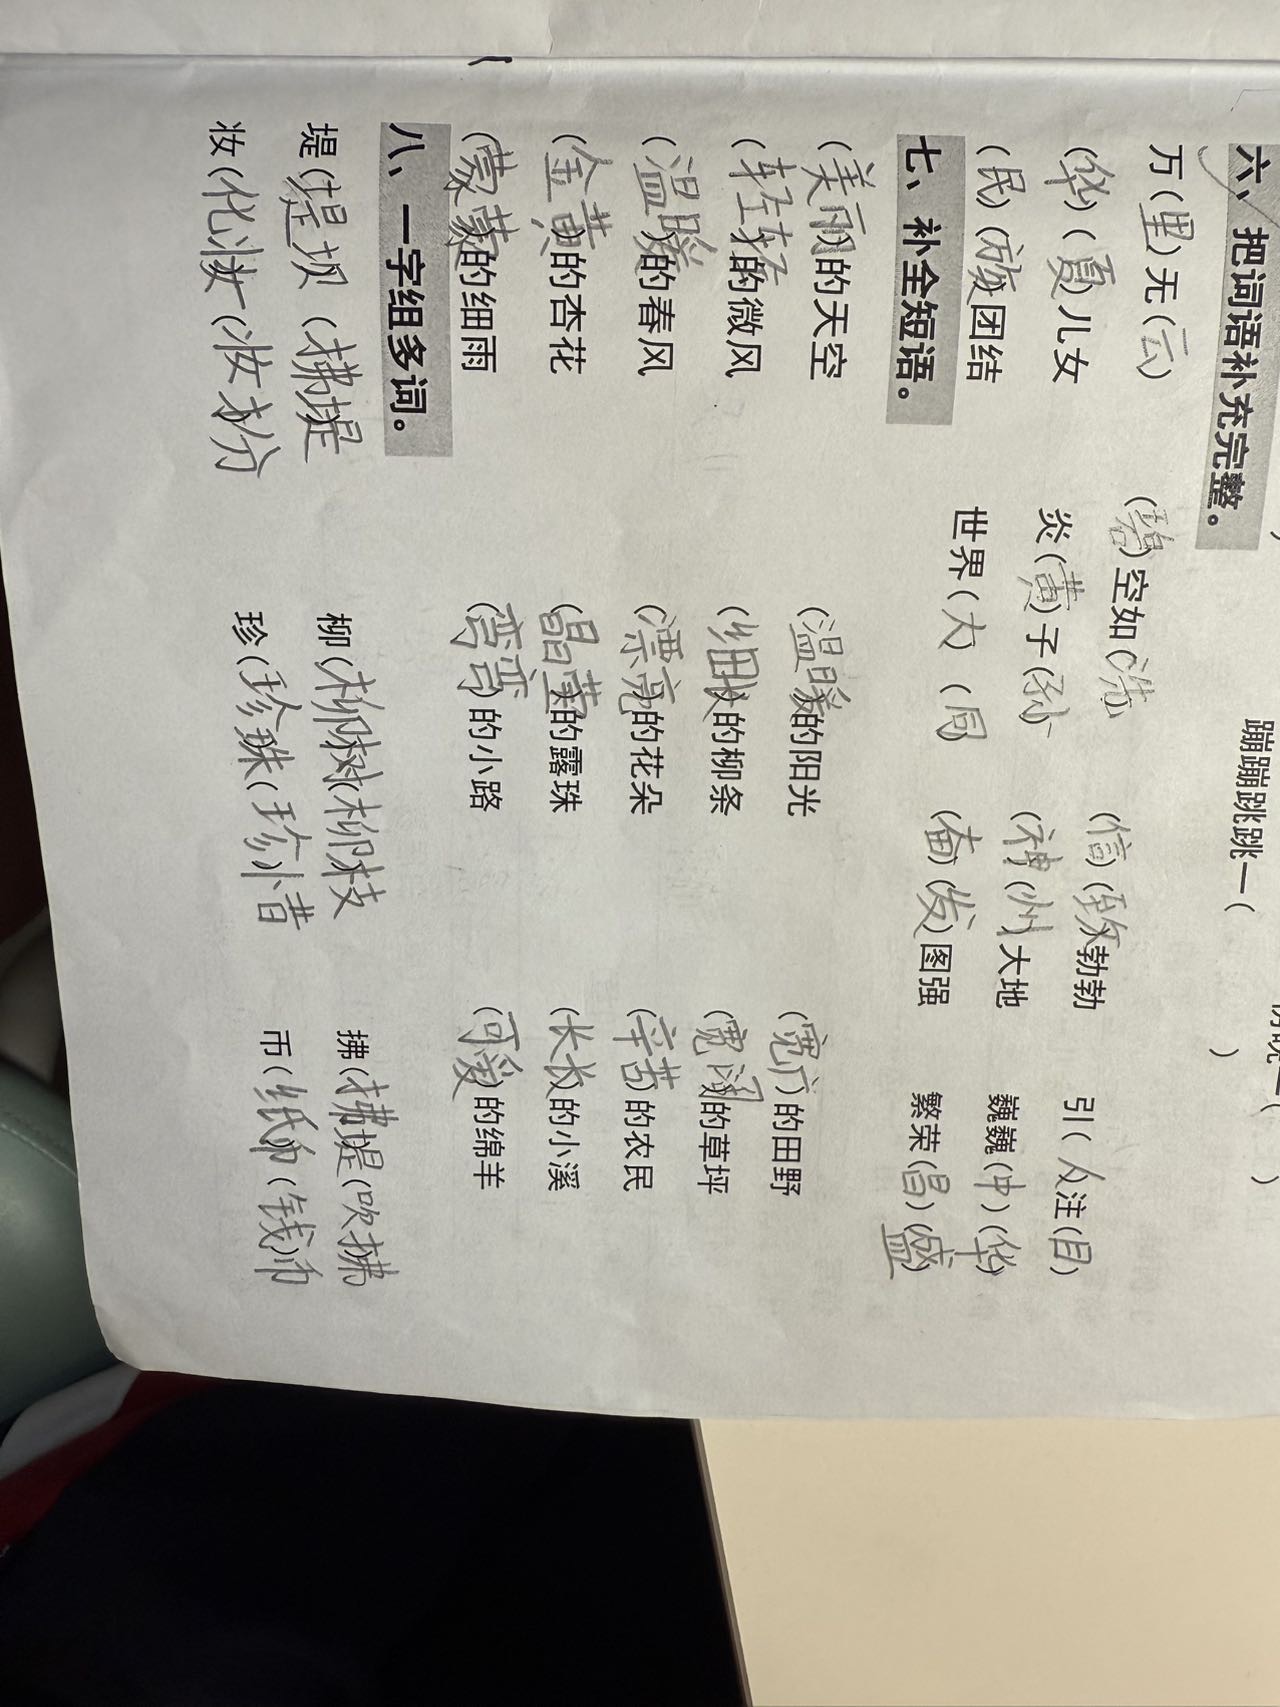 蹦蹦跳跳一(
六、把词语补充完整。
万(里)无(云) (碧)空如(洗) (信)(致)勃勃 引(人)注(目)
(华)(夏)儿女 炎(黄)子(孙) (神)(州)大地 巍巍(中)(华)
(民)(族)团结 世界(大)(同) (奋)(发)图强 繁荣(昌)(盛)
七、补全短语。
(美丽的天空 (温暖的阳光 (宽广)的田野
(轻轻的微风 (细长的柳条 (宽阔的草坪
(温暖的春风 (漂亮的花朵 (辛苦)的农民
(金黄的杏花 (晶莹的露珠 (长长的小溪
(蒙蒙的细雨 (弯弯的小路 (可爱)的绵羊
八、一字组多词。
堤(堤坝 (拂堤 柳(柳树(柳枝 拂(拂堤(吹拂
妆(化妆 (妆扮 珍(珍珠(珍惜 币(纸币(钱币